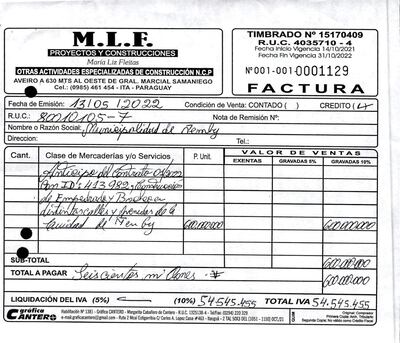 M.L.F.
PROYECTOS Y CONSTRUCCIONES
María Liz Fleitas
OTRAS ACTIVIDADES ESPECIALIZADAS DE CONSTRUCCIÓN N.C.P
AVEIRO A 630 MTS AL OESTE DE GRAL. MARCIAL SAMANIEGO
Cel.: (0985) 461 454 - ITA - PARAGUAY
TIMBRADO Nº 15170409
R.U.C. 4035710 - 4
Fecha Inicio Vigencia 14/10/2021
Fecha Fin Vigencia 31/10/2022
Nº 001-001-0001129
FACTURA
Fecha de Emisión: 13/05/2022 Condición de Venta: CONTADO ( ) CREDITO (
R.U.C.: 80010105-7 Nota de Remisión Nº:
Nombre o Razón Social: Municipalidad de Ñemby
Dirección: Tel.:
Cant. Clase de Mercaderías y/o Servicios P. Unit. VALOR DE VENTAS
EXENTAS GRAVADAS 5% GRAVADAS 10%
Anticipo del Contrato
con ID: 413.982
de Empedrado y
distintas calles y de la
ciudad de Ñemby 600.000.000 600.000.000
SUB-TOTAL 600.000.000
TOTAL A PAGAR Seiscientos millones 600.000.000
LIQUIDACIÓN DEL IVA (5%) (10%) 54.545.455 TOTAL IVA 54.545.455
gráfica CANTERO
Habilitación Nº 138 - Gráfica CANTERO - Margarita Caballero de Cantero - R.U.C.
Original: Comprador